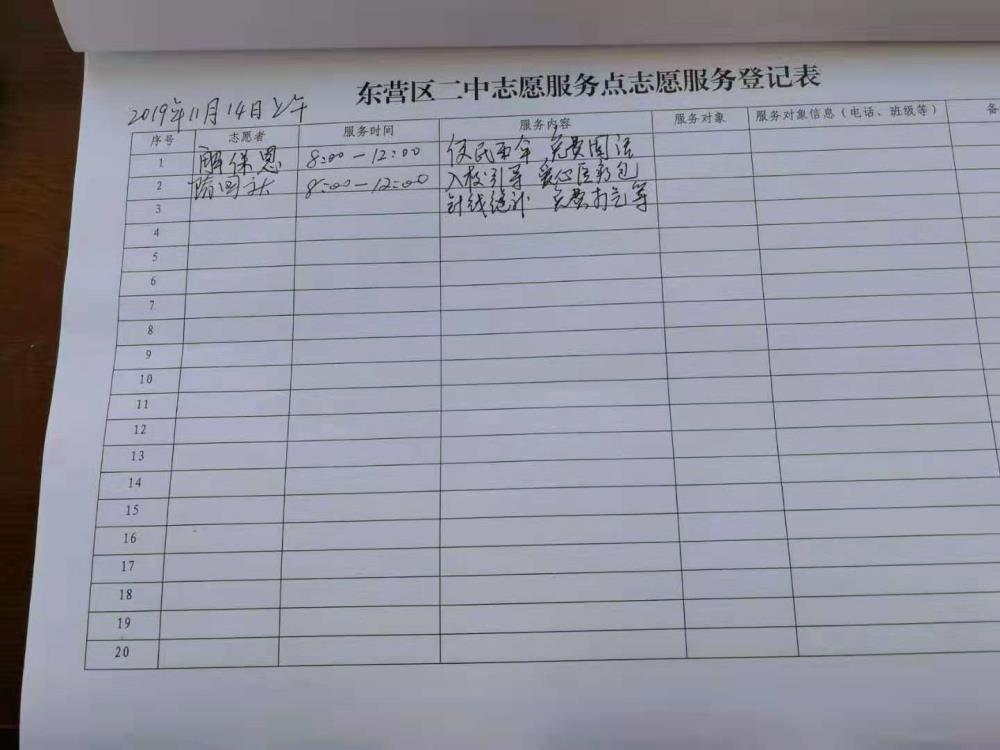 东营区二中志愿服务点志愿服务登记表
2019年11月14日上午
序号 志愿者 服务时间 服务内容 服务对象 服务对象信息（电话、班级等） 备
1 解保恩 8:00-12:00 便民雨伞 免费阅读
2 8:00-12:00 入校引导 爱心医药包
3 针线缝补 免费打气等
4
5
6
7
8
9
10
11
12
13
14
15
16
17
18
19
20